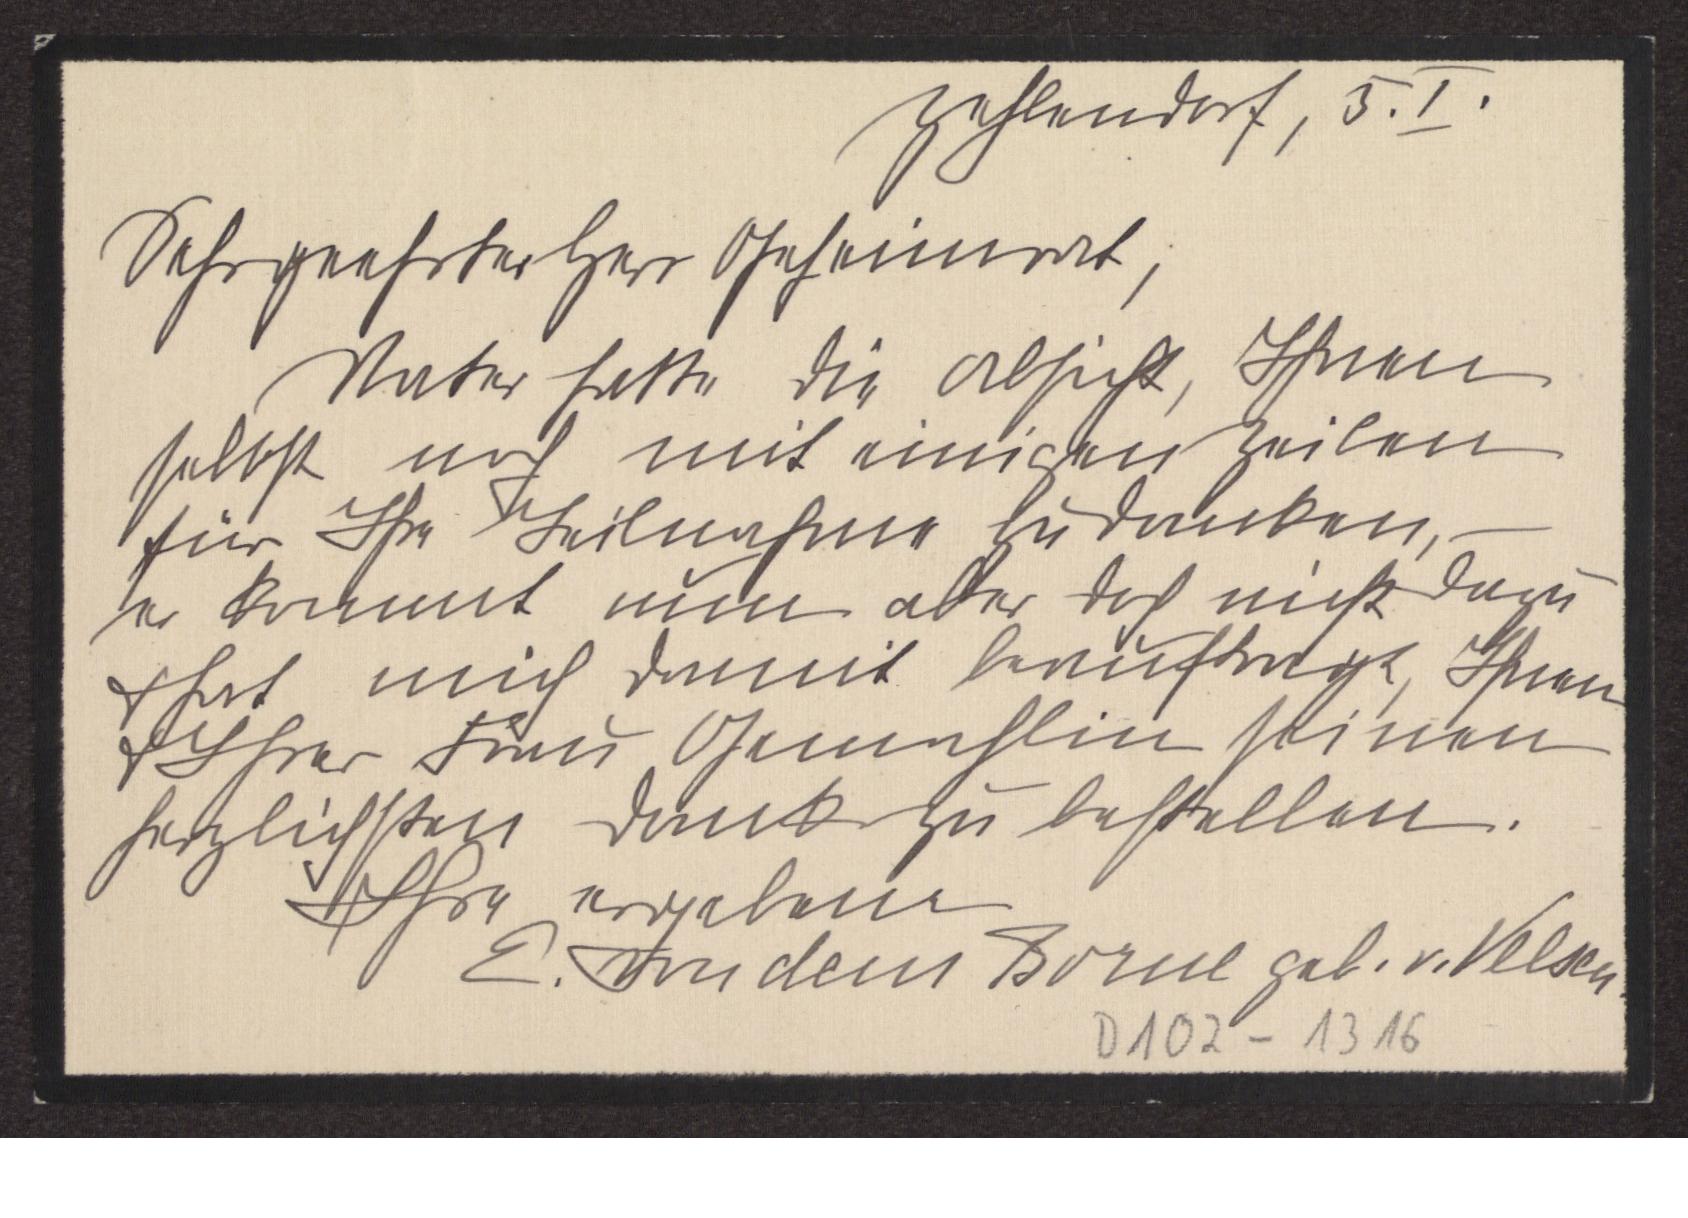 Zehlendorf, 5. I.
Sehrgeehrter Herr Geheimrat,
Vater hatte die Absicht, Ihnen
selbst noch mit einigen Zeilen
für Ihre Teilnahme zu danken, —
er kommt nun aber doch nicht dazu
& hat mich damit beauftragt, Ihnen
& Ihrer Frau Gemahlin seinen
herzlichsten Dank zu bestellen.
Ihre ergebene
E. von dem Borne geb. v. Velsen.
D102 - 1316